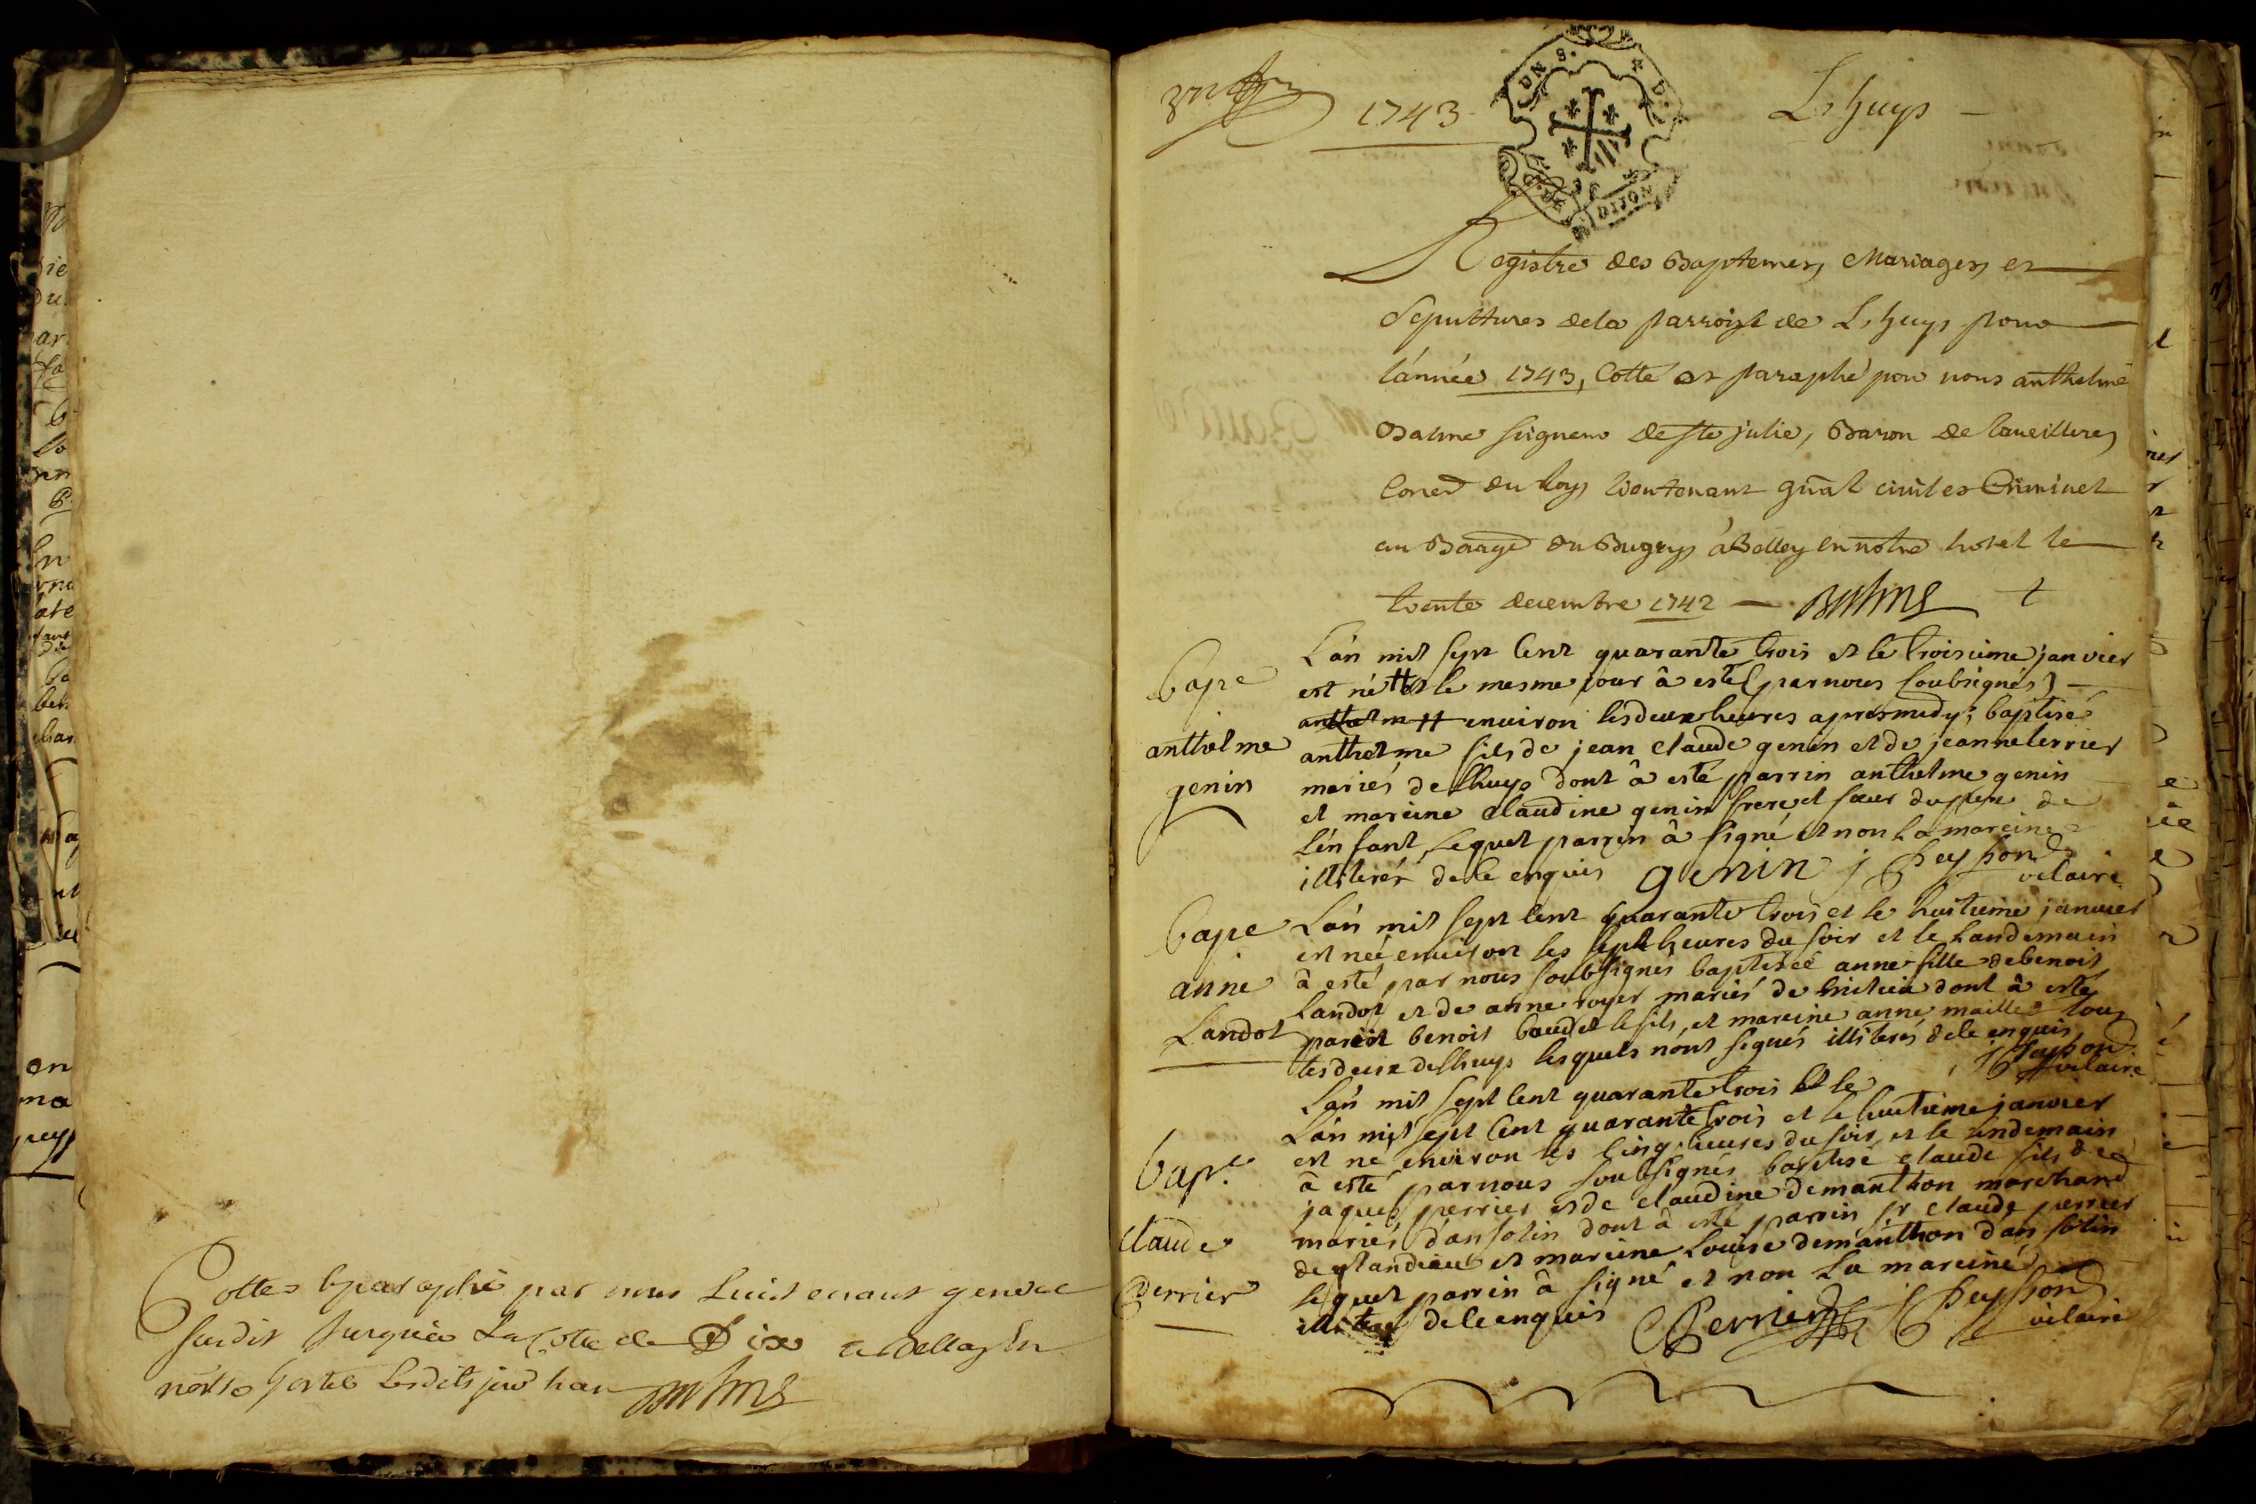 Cottés & paraphé par nous Lieutenant general
susdit jusques La Cotte de Dix a Belley En
notre hostel Lesdits jour & an Balme
1743
Lhuys
Registre des Baptemes, Mariages, et
Sepultures de la parroisse de Lhuys pour
l'année 1743, Cotté et paraphé par nous anthelme
Balme seigneur de ste julie, Baron de
Coner du Roy Lieutenant gñal civil et Criminel
au Baage du Bugey à Belley en notre hotel le
trente decembre 1742 Balme
bapt
anthelme
genin
L'an mil sept cent quarante trois et le troisieme janvier
est né # et le mesme jour à esté (par nous soubsignés)
# environ les deux heures apres midy; baptisé
anthelme fils de jean claude genin et de jeanne terrier
mariés de lhuys dont à esté parrin anthelme genin
et mareine claudine genin frere et soeur du pere de
l'enfant, lequel parrin à signé et non la mareine
illiteréz de ce enquis genin j Peysson
vicaire
bapt
anne
Landot
L'an mil sept cent quarante trois et le huitieme janvier
est neé environ les sept heures du soir et le Landemain
à esté par nous soubsignés baptiséé anne fille de benoit
Landot et de anne royer mariés de dont à esté
parrin benoit baudet le fils, et mareine anne maillet tous
les deux de lhuys lesquels n'ont signés illiterés de ce enquis
j Peysson
vicaire
L'an mil sept cent quarante trois et le
L'an mil sept cent quarante trois et le huitieme janvier
est né environ les cinq heures du soir, et le Lendemain
à esté par nous soubsignés baptisé claude fils de
jaques perrier et de claudine demanthon marchand
mariés d'ansolin dont à esté parrin sr claude perrier
de glandieu et mareine Louise demanthon d'ansolin
lequel parrin à signé et non la mareine
de ce enquis Perrier j Peysson
vicaire
bapt.
claude
perrier